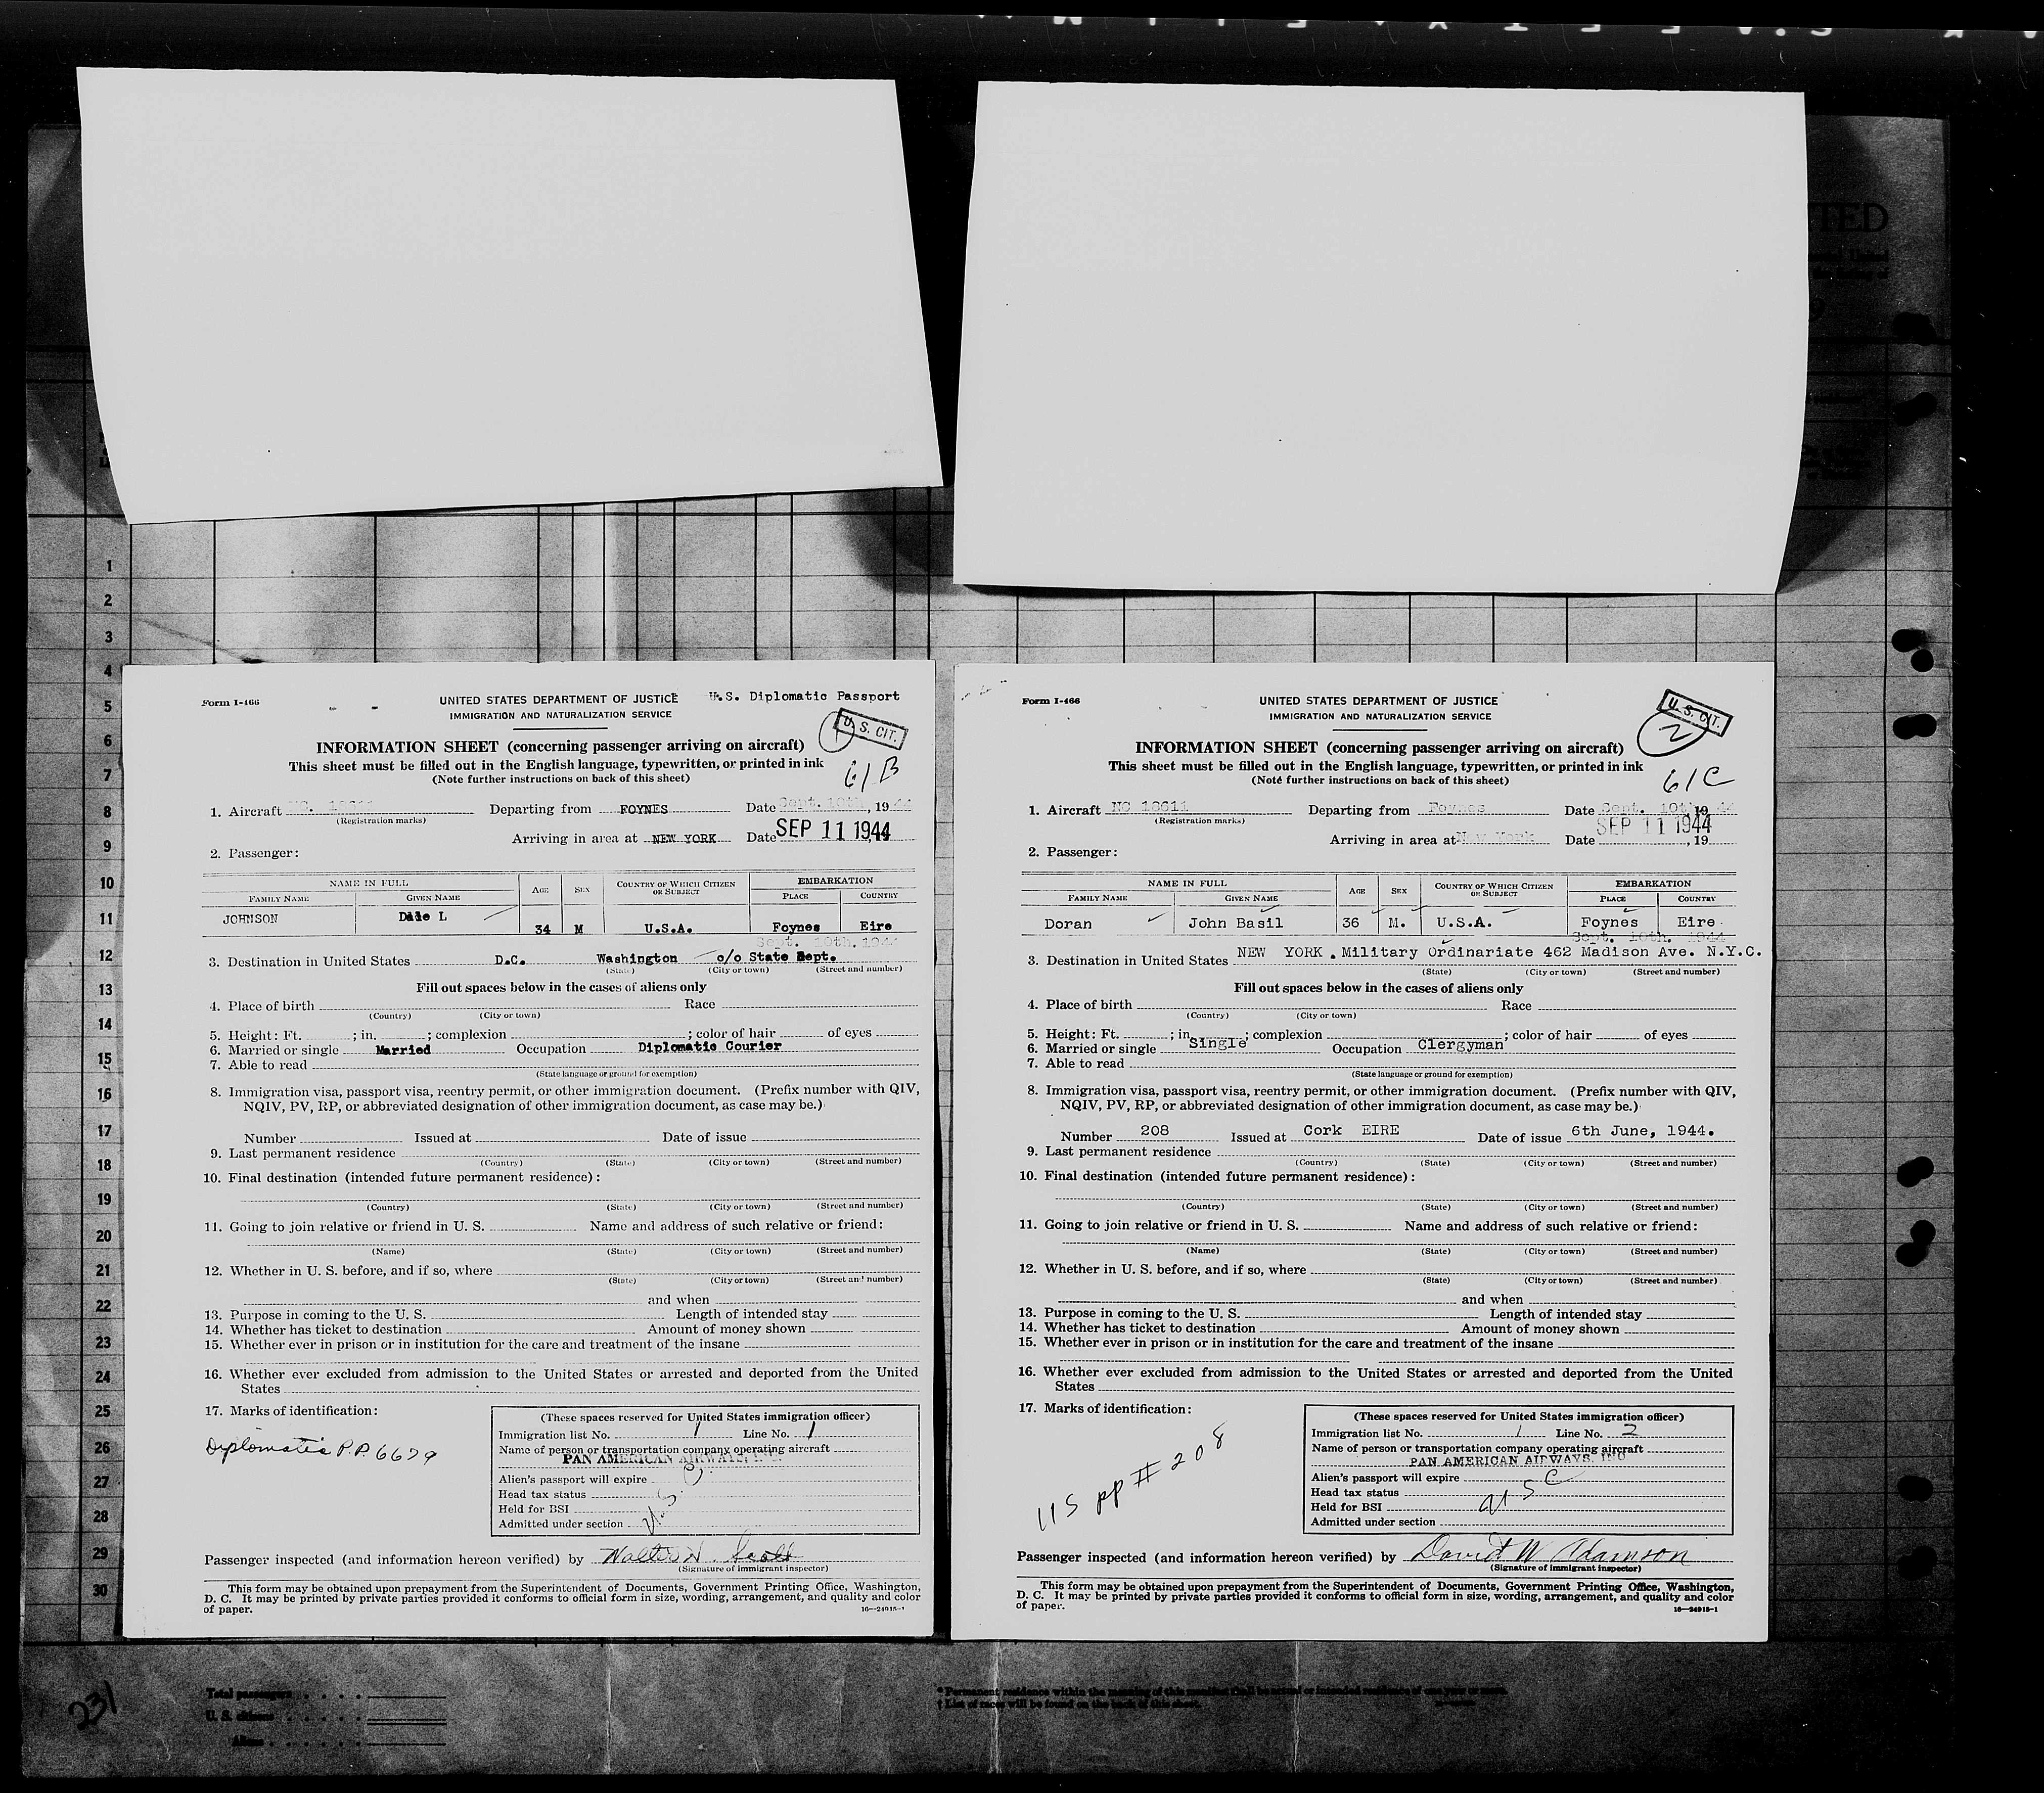 TED
1
2
3
4
5
6
7
8
9
10
11
12
13
14
15
16
17
18
19
20
21
22
23
24
25
26
27
28
29
30
Form I-466
UNITED STATES DEPARTMENT OF JUSTICE U.S. Diplomatic Passport
IMMIGRATION AND NATURALIZATION SERVICE
1 U.S. CIT.
INFORMATION SHEET (concerning passenger arriving on aircraft)
This sheet must be filled out in the English language, typewritten, or printed in ink
61B
(Note further instructions on back of this sheet)
1. Aircraft NC. 18611 Departing from FOYNES Date Sept. 10th, 1944
(Registration marks)
Arriving in area at NEW YORK Date SEP 11 1944
2. Passenger:
NAME IN FULL AGE SEX COUNTRY OF WHICH CITIZEN OR SUBJECT EMBARKATION
FAMILY NAME GIVEN NAME PLACE COUNTRY
JOHNSON Dale L 34 M U.S.A. Foynes Eire
Sept. 10th. 1944
3. Destination in United States D.C. Washington c/o State Dept.
(State) (City or town) (Street and number)
Fill out spaces below in the cases of aliens only
4. Place of birth Race
(Country) (City or town)
5. Height: Ft. ; in. ; complexion ; color of hair of eyes
6. Married or single Married Occupation Diplomatic Courier
7. Able to read
(State language or ground for exemption)
8. Immigration visa, passport visa, reentry permit, or other immigration document. (Prefix number with QIV,
NQIV, PV, RP, or abbreviated designation of other immigration document, as case may be.)
Number Issued at Date of issue
9. Last permanent residence
(Country) (State) (City or town) (Street and number)
10. Final destination (intended future permanent residence):
(Country) (State) (City or town) (Street and number)
11. Going to join relative or friend in U. S. Name and address of such relative or friend:
(Name) (State) (City or town) (Street and number)
12. Whether in U. S. before, and if so, where
(State) (City or town) (Street and number)
and when
13. Purpose in coming to the U. S. Length of intended stay
14. Whether has ticket to destination Amount of money shown
15. Whether ever in prison or in institution for the care and treatment of the insane
16. Whether ever excluded from admission to the United States or arrested and deported from the United
States
17. Marks of identification:
Diplomatic P.P. 6679
(These spaces reserved for United States immigration officer)
Immigration list No. 1 Line No. 1
Name of person or transportation company operating aircraft
PAN AMERICAN AIRWAYS, INC.
Alien's passport will expire
Head tax status
Held for BSI
Admitted under section
U.S.C.
Passenger inspected (and information hereon verified) by Walter H. Scott
(Signature of immigrant inspector)
This form may be obtained upon prepayment from the Superintendent of Documents, Government Printing Office, Washington,
D. C. It may be printed by private parties provided it conforms to official form in size, wording, arrangement, and quality and color
of paper.
16—24915-1
Form I-466
UNITED STATES DEPARTMENT OF JUSTICE
IMMIGRATION AND NATURALIZATION SERVICE
U.S. CIT.
2
INFORMATION SHEET (concerning passenger arriving on aircraft)
This sheet must be filled out in the English language, typewritten, or printed in ink
61C
(Note further instructions on back of this sheet)
1. Aircraft NC 18611 Departing from Foynes Date Sept. 10th 1944
(Registration marks)
SEP 11 1944
Arriving in area at New York Date , 19
2. Passenger:
NAME IN FULL AGE SEX COUNTRY OF WHICH CITIZEN OR SUBJECT EMBARKATION
FAMILY NAME GIVEN NAME PLACE COUNTRY
Doran John Basil 36 M. U.S.A. Foynes Eire.
Sept. 10th. 1944
3. Destination in United States NEW YORK. Military Ordinariate 462 Madison Ave. N.Y.C.
(State) (City or town) (Street and number)
Fill out spaces below in the cases of aliens only
4. Place of birth Race
(Country) (City or town)
5. Height: Ft. ; in ; complexion ; color of hair of eyes
6. Married or single Single Occupation Clergyman
7. Able to read
(State language or ground for exemption)
8. Immigration visa, passport visa, reentry permit, or other immigration document. (Prefix number with QIV,
NQIV, PV, RP, or abbreviated designation of other immigration document, as case may be.)
Number 208 Issued at Cork EIRE Date of issue 6th June, 1944.
9. Last permanent residence
(Country) (State) (City or town) (Street and number)
10. Final destination (intended future permanent residence):
(Country) (State) (City or town) (Street and number)
11. Going to join relative or friend in U. S. Name and address of such relative or friend:
(Name) (State) (City or town) (Street and number)
12. Whether in U. S. before, and if so, where
(State) (City or town) (Street and number)
and when
13. Purpose in coming to the U. S. Length of intended stay
14. Whether has ticket to destination Amount of money shown
15. Whether ever in prison or in institution for the care and treatment of the insane
16. Whether ever excluded from admission to the United States or arrested and deported from the United
States
17. Marks of identification:
US pp # 208
(These spaces reserved for United States immigration officer)
Immigration list No. 1 Line No. 2
Name of person or transportation company operating aircraft
PAN AMERICAN AIRWAYS, INC
Alien's passport will expire
Head tax status
Held for BSI
Admitted under section
USC
Passenger inspected (and information hereon verified) by David W Adamson
(Signature of immigrant inspector)
This form may be obtained upon prepayment from the Superintendent of Documents, Government Printing Office, Washington,
D. C. It may be printed by private parties provided it conforms to official form in size, wording, arrangement, and quality and color
of paper.
16—24915-1
231
Total passengers
U. S. citizens
Aliens
* Permanent residence within the meaning of this manifest shall be actual or intended residence of one year or more.
† List of races will be found on the back of this sheet.